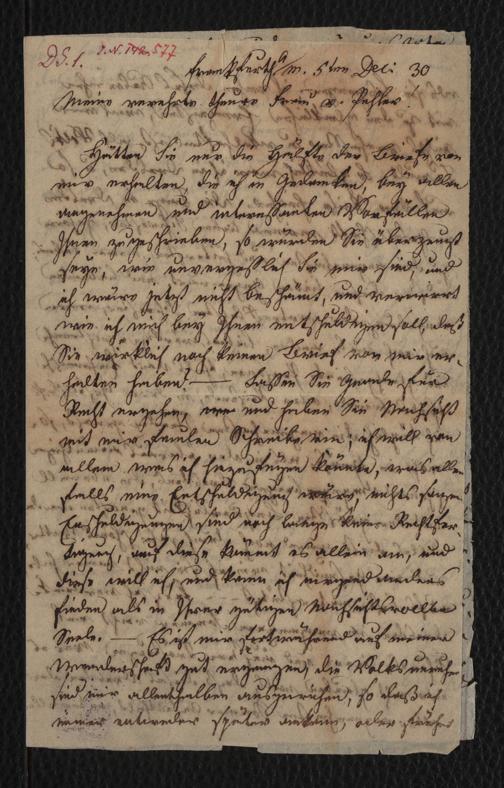 DS. 1. I.N. 142.577
Frankfurth a/m. 5ten Dec. 30
Meine verehrte theure Frau v. Pehler!
Hätten Sie nur die Hälfte der Briefe von
mir erhalten, die ich in Gedanken, bey allen
angenehmen und interessanten Vorfällen
Ihnen zugeschrieben, so würden Sie überzeugt
seyn, wie unvergesslich Sie mir sind, und
ich wäre jetzt nicht beschämt, und verwirrt
wie ich mich bey Ihnen entschuldigen soll, daß
Sie wirklich noch keinen Brief von mir er-
halten haben? — Lassen Sie Gnade für
Recht ergehen, und haben Sie Nachsicht
mit mir faulen Schreiberin; ich will von
allem was ich hinzufügen könnte, was allen
falls eine Entschuldigung wäre, nichts sagen
Entschuldigungen sind noch lange keine Rechtfer-
tigung, auf diese kömmt es allein an, und
diese will ich, und kann ich nirgend anders
finden als in Ihrer gütigen nachsichtsvollen
Seele. — Es ist mir fortwährend auf meiner
Wanderschaft gut ergangen, die Volksunruhen
sind mir allenthalben ausgewichen, so daß ich
immer entweder später ankam, oder früher